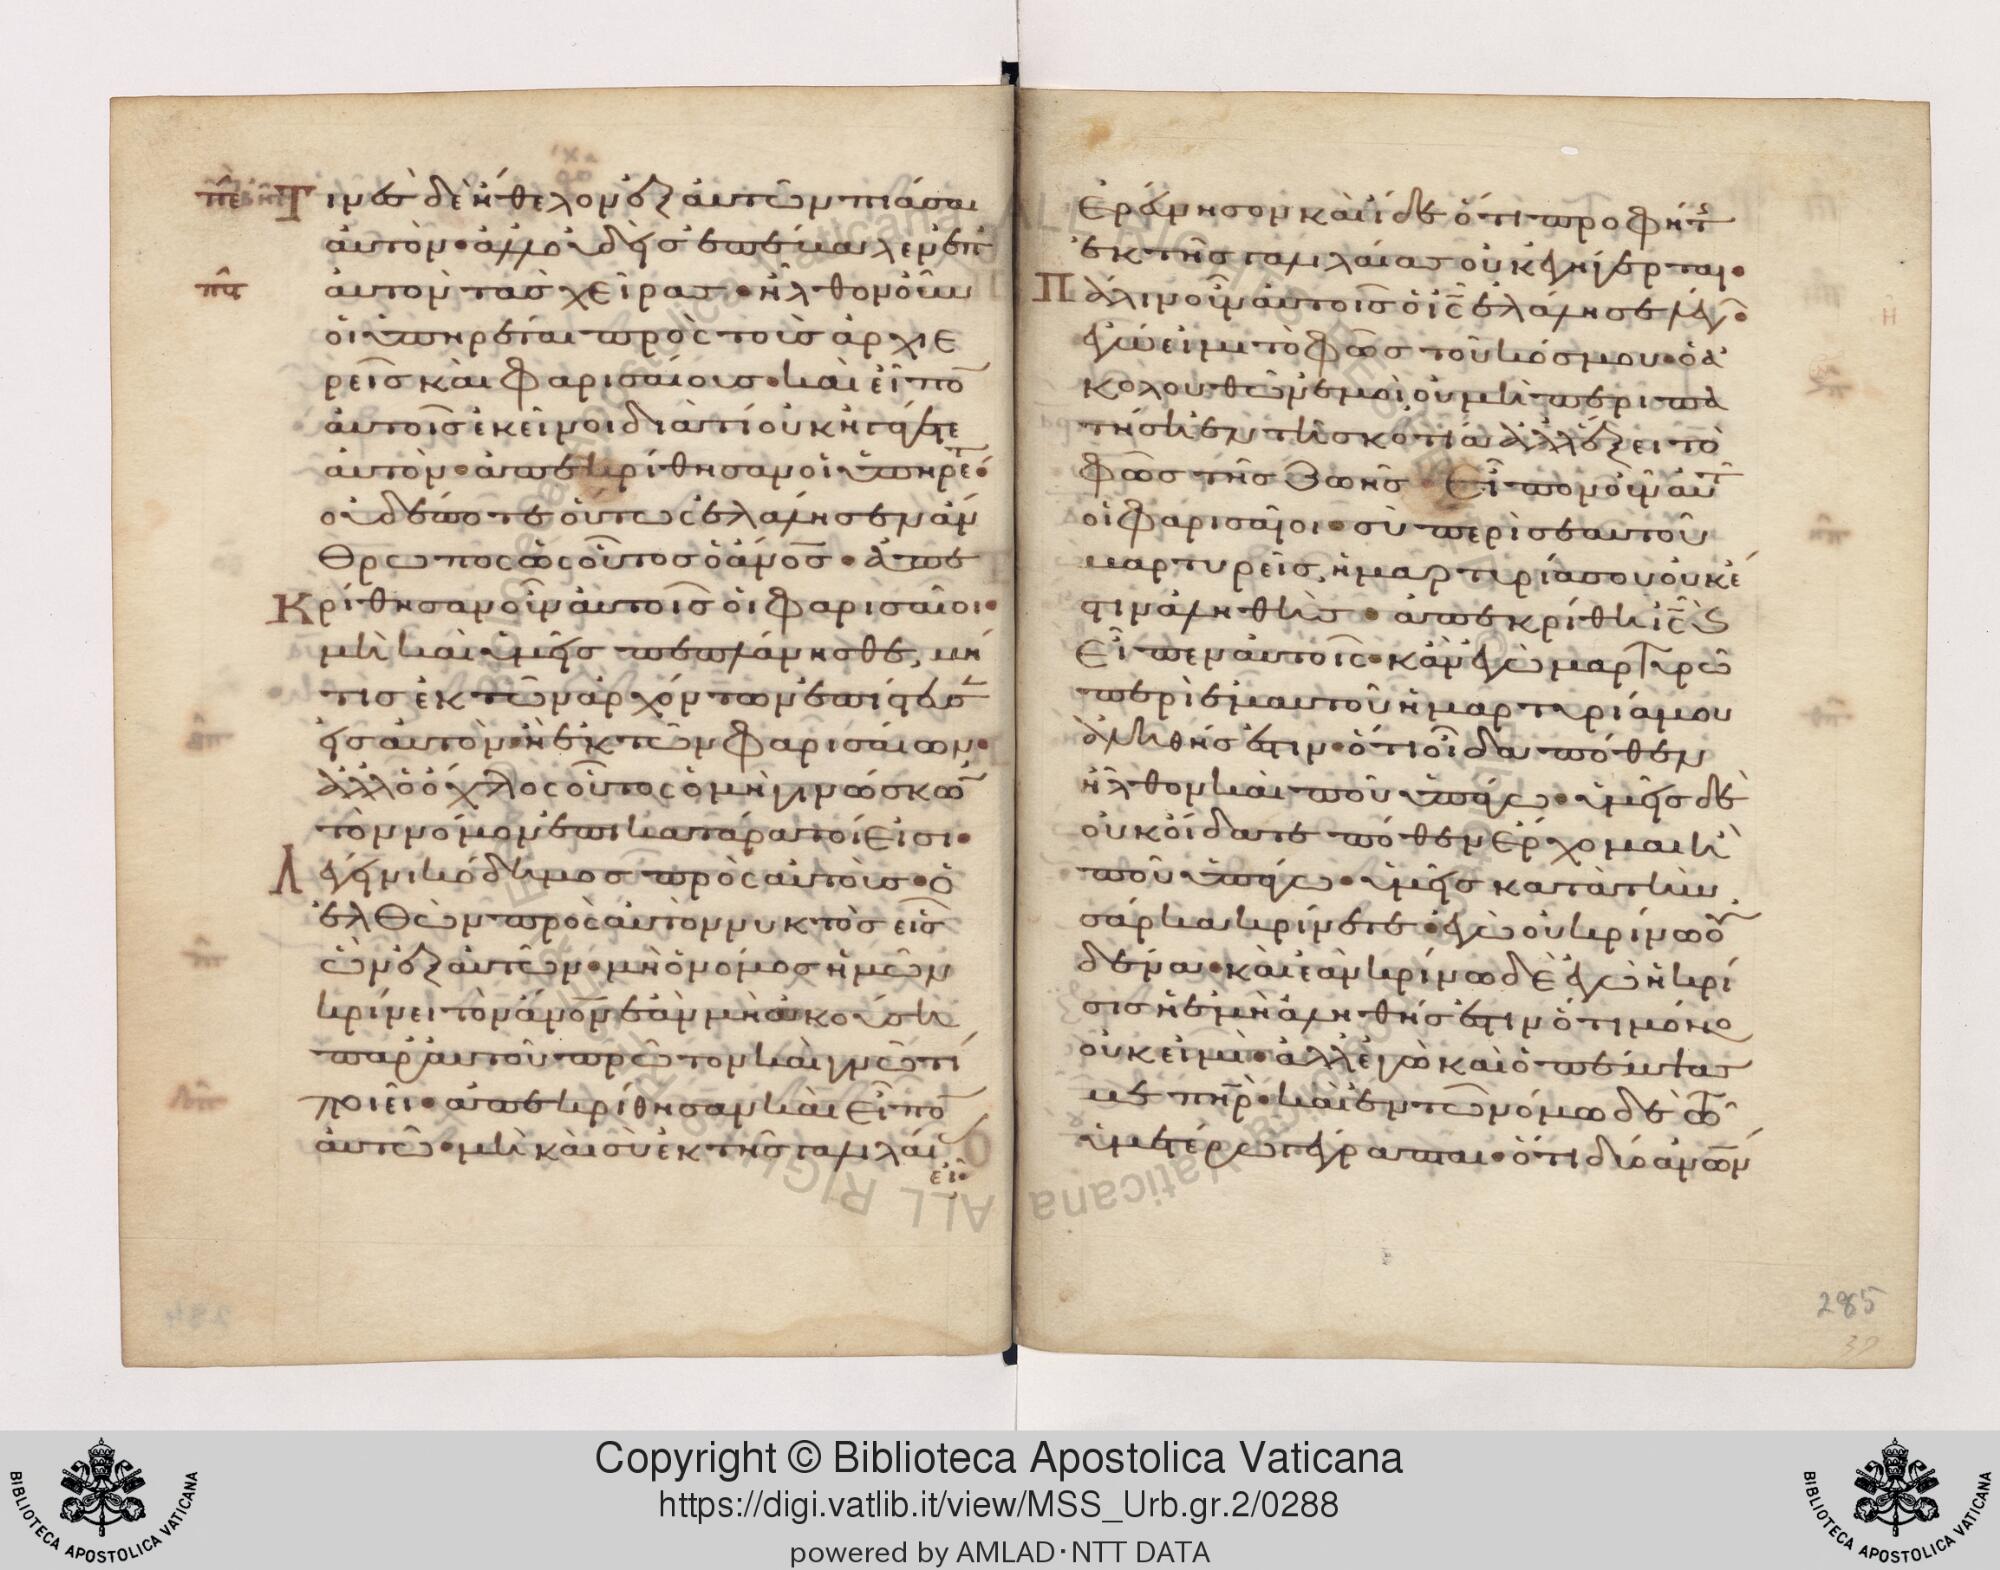 Τινὲς δὲ ἤθελον ἐξ αὐτῶν πιάσαι
αὐτὸν· ἀλλ' οὐδεὶς ἐπέβαλεν ἐπ'
αὐτὸν τὰς χεῖρας· ἦλθον οὖν
οἱ ὑπηρέται πρὸς τοὺς ἀρχιε
ρεῖς καὶ φαρισαίους· καὶ εἶπο̅
αὐτοῖς ἐκεῖνοι διατί οὐκ ἠγάγετε
αὐτὸν· ἀπεκρίθησαν οἱ ὑπηρέτ·
οὐδέποτε οὕτως ἐλάλησεν ἄν
θρωπος ὡς οὗτος ὁ ἄν̅ο̅ς· ἀπε
κρίθησαν οὖν αὐτοῖς οἱ φαρισαῖοι·
μὴ καὶ ὑμεῖς πεπλάνησθε, μή
τις ἐκ τῶν ἀρχόντων ἐπίστευσ
εἰς αὐτὸν· ἢ ἐκ τῶν φαρισαίων·
ἀλλ' ὁ ὄχλος οὗτος ὁ μὴ γινώσκω̅
τὸν νόμον ἐπικατάρατοί εἰσι·
Λέγει νικόδημος πρὸς αὐτοὺς· ὁ
ἐλθὼν πρὸς αὐτὸν νυκτὸς εἷς
ὢν ἐξ αὐτῶν· μὴ ὁ νόμος ἡμῶν
κρίνει τὸν ἄν̅ο̅ν ἐὰν μὴ ἀκούσῃ
παρ' αὐτοῦ πρῶτον καὶ γνῶ τί
ποιεῖ· ἀπεκρίθησαν καὶ εἶπο̅
αὐτῶ· μὴ καὶ σὺ ἐκ τῆς γαλιλαί
εἶ·
Ἐρεύνησον καὶ ἴδε ὅτι προφήτ
ἐκ τῆς γαλιλαίας οὐκ ἐγήγερται·
Πάλιν οὖν αὐτοῖς ὁ ι̅ς̅ ἐλάλησε λέγ·
ἐγώ εἰμι τὸ φῶς τοῦ κόσμου· ὁ ἀ
κολουθῶν ἐμοὶ οὐ μὴ περιπα
τήσῃ ἐν τῇ σκοτία ἀλλ' ἕξει τὸ
φῶς τῆς ζωῆς· Εἶπον οὖν αὐτ
οἱ φαρισαῖοι· σὺ περὶ σεαυτοῦ
μαρτυρεῖς, ἡ μαρτυρία σου οὐκ ἔ
στιν ἀληθὴς· ἀπεκρίθη ι̅ς̅ κ
εἶπεν αὐτοῖς· κἂν ἐγὼ μαρτυρῶ
περὶ ἐμαυτοῦ ἡ μαρτυρία μου
ἀληθής ἐστιν· ὅτι οἶδα πόθεν
ἦλθον καὶ ποῦ ὑπάγω· ὑμεῖς δὲ
οὐκ οἴδατε πόθεν ἔρχομαι ἢ
ποῦ ὑπάγω· ὑμεῖς κατὰ τὴν
σάρκα κρίνετε· ἐγὼ οὐ κρίνω οὐ
δένα· καὶ ἐὰν κρίνω δὲ ἐγὼ ἡ κρί
σις ἡ ἐμὴ ἀληθής ἐστιν ὅτι μόνο
οὐκ εἰμὶ· ἀλλ' ἐγὼ καὶ ὁ πέμψας
με π̅η̅ρ· καὶ ἐν τῶ νόμω δὲ τῶ
ὑμετέρω γέγραπται· ὅτι δύο ἀν̅ω̅ν
285
Copyright © Biblioteca Apostolica Vaticana
https://digi.vatlib.it/view/MSS_Urb.gr.2/0288
powered by AMLAD·NTT DATA
BIBLIOTECA APOSTOLICA VATICANA
BIBLIOTECA APOSTOLICA VATICANA